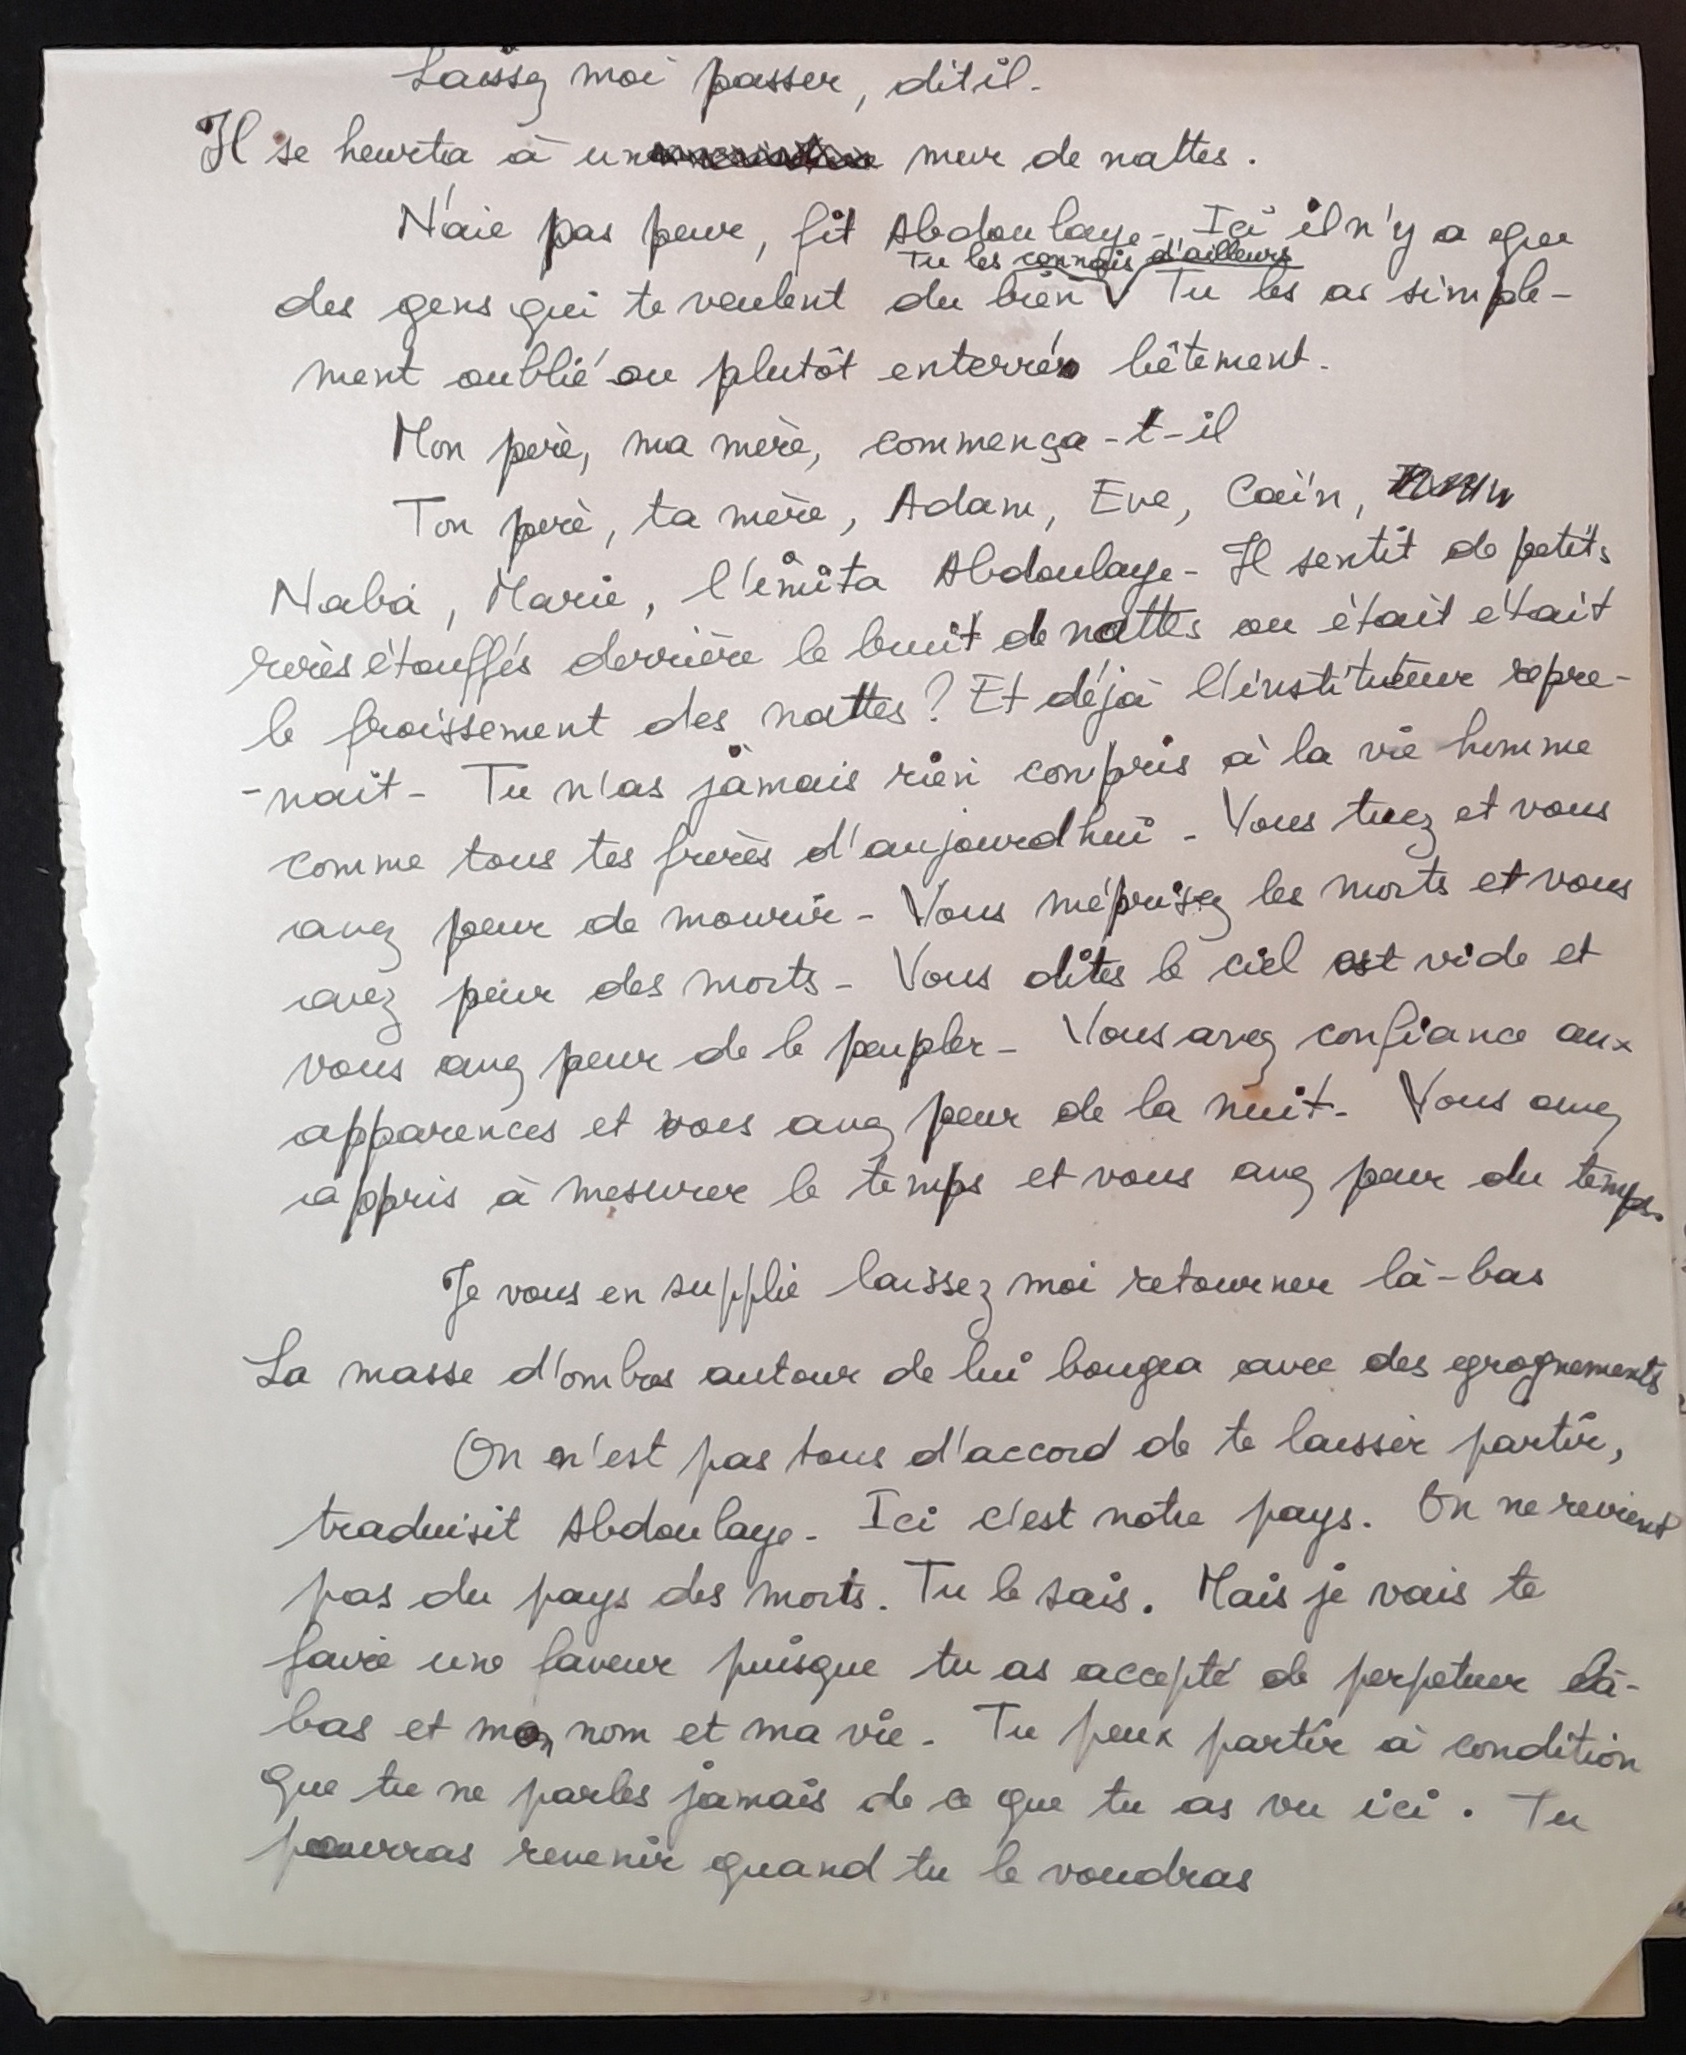 Laissez moi passer, dit il -
Il se heurta à un mur de nattes.
N'aie pas peur, fit Abdoulaye - Ici il n'y a que
Tu les connais d'ailleurs
des gens qui te veulent du bien Tu les as simple-
ment oublié ou plutôt enterrés bêtement.
Mon père, ma mère, commença-t-il
Ton père, ta mère, Adam, Eve, Caïn,
Naba, Marie, l'imita Abdoulaye - Il sentit de petits
rires étouffés derrière le bruit de nattes ou était était
le froissement des nattes ? Et déjà l'instituteur repre-
-nait - Tu n'as jamais rien compris à la vie homme
comme tous tes frères d'aujourd'hui - Vous tuez et vous
avez peur de mourir - Vous méprisez les morts et vous
avez peur des morts - Vous dites le ciel est vide et
vous avez peur de le peupler - Vous avez confiance aux
apparences et vous avez peur de la nuit - Vous avez
appris à mesurer le temps et vous avez peur du temps.
Je vous en supplie laissez moi retourner là-bas
La masse d'ombres autour de lui bougea avec des grognements
On n'est pas tous d'accord de te laisser partir,
traduisit Abdoulaye - Ici c'est notre pays. On ne revient
pas du pays des morts. Tu le sais. Mais je vais te
faire une faveur puisque tu as accepté de perpetuer là-
bas et mon nom et ma vie - Tu peux partir à condition
que tu ne parles jamais de ce que tu as vu ici. Tu
pourras revenir quand tu le voudras